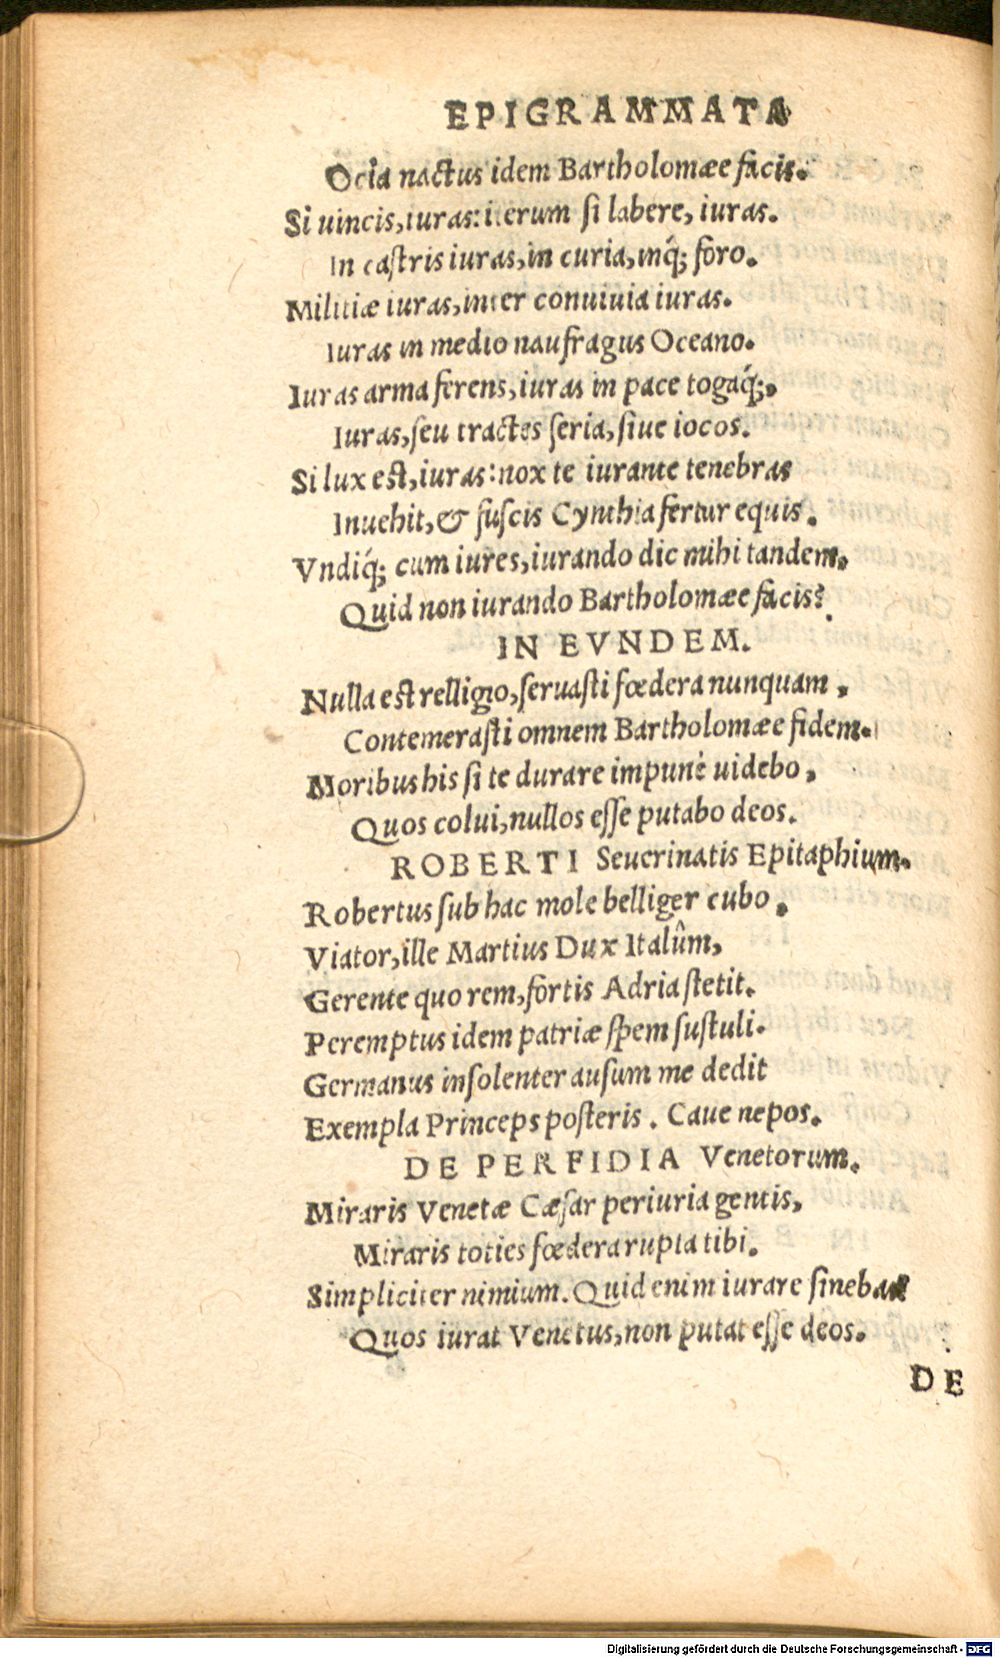 EPIGRAMMATA
Ocia nactus idem Bartholomæe facis.
Si uincis, iuras: iterum si labere, iuras.
In castris iuras, in curia, inq́; foro.
Militiæ iuras, inter conuiuia iuras.
Iuras in medio naufragus Oceano.
Iuras arma ferens, iuras in pace togaq́;,
Iuras, seu tractes seria, siue iocos.
Si lux est, iuras: nox te iurante tenebras
Inuehit, & fuscis Cynthia fertur equis.
Vndiq́; cum iures, iurando dic mihi tandem,
Quid non iurando Bartholomæe facis?
IN EVNDEM.
Nulla est relligio, seruasti fœdera nunquam,
Contemerasti omnem Bartholomæe fidem.
Moribus his si te durare impunè uidebo,
Quos colui, nullos esse putabo deos.
ROBERTI Seuerinatis Epitaphium.
Robertus sub hac mole belliger cubo,
Viator, ille Martius Dux Italûm,
Gerente quo rem, fortis Adria stetit.
Peremptus idem patriæ spem sustuli.
Germanus insolenter ausum me dedit
Exempla Princeps posteris. Caue nepos.
DE PERFIDIA Venetorum.
Miraris Venetæ Cæsar periuria gentis,
Miraris toties fœdera rupta tibi.
Simpliciter nimium. Quid enim iurare sinebas
Quos iurat Venetus, non putat esse deos.
DE
Digitalisierung gefördert durch die Deutsche Forschungsgemeinschaft - DFG